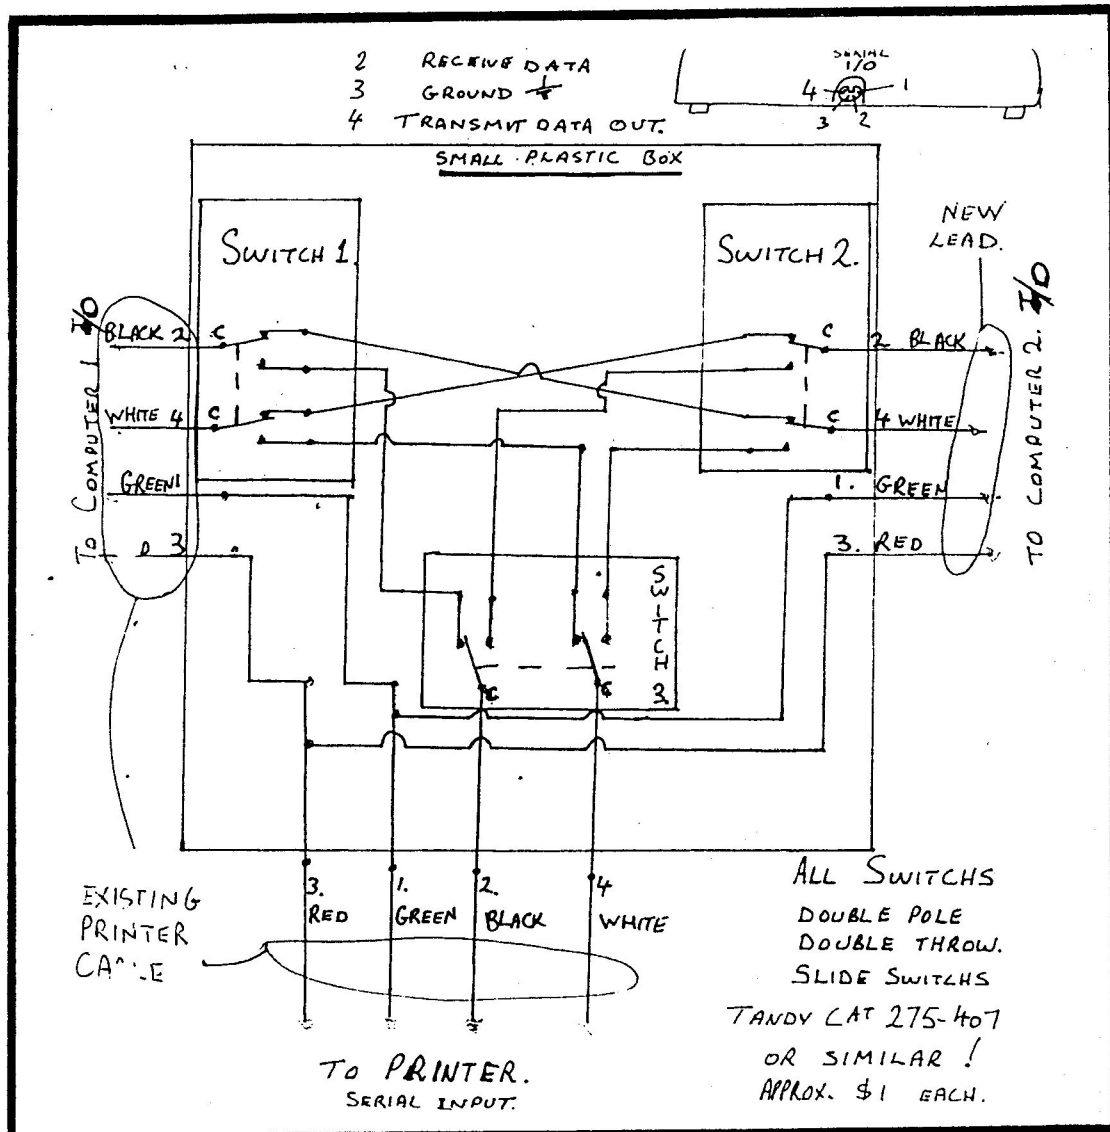 2 RECEIVE DATA
3 GROUND
4 TRANSMIT DATA OUT.
SERIAL
I/O
4 1
3 2
SMALL PLASTIC BOX
SWITCH 1.
SWITCH 2.
NEW
LEAD.
TO COMPUTER 1 I/O
BLACK 2 C
WHITE 4 C
GREEN 1
3
C 2 BLACK
C 4 WHITE
1. GREEN
3. RED
TO COMPUTER 2. I/O
SWITCH 3.
C C
3. 1. 2. 4
RED GREEN BLACK WHITE
EXISTING
PRINTER
TO PRINTER.
SERIAL INPUT.
ALL SWITCHS
DOUBLE POLE
DOUBLE THROW.
SLIDE SWITCHS
TANDY CAT 275-407
OR SIMILAR !
APPROX. $1 EACH.